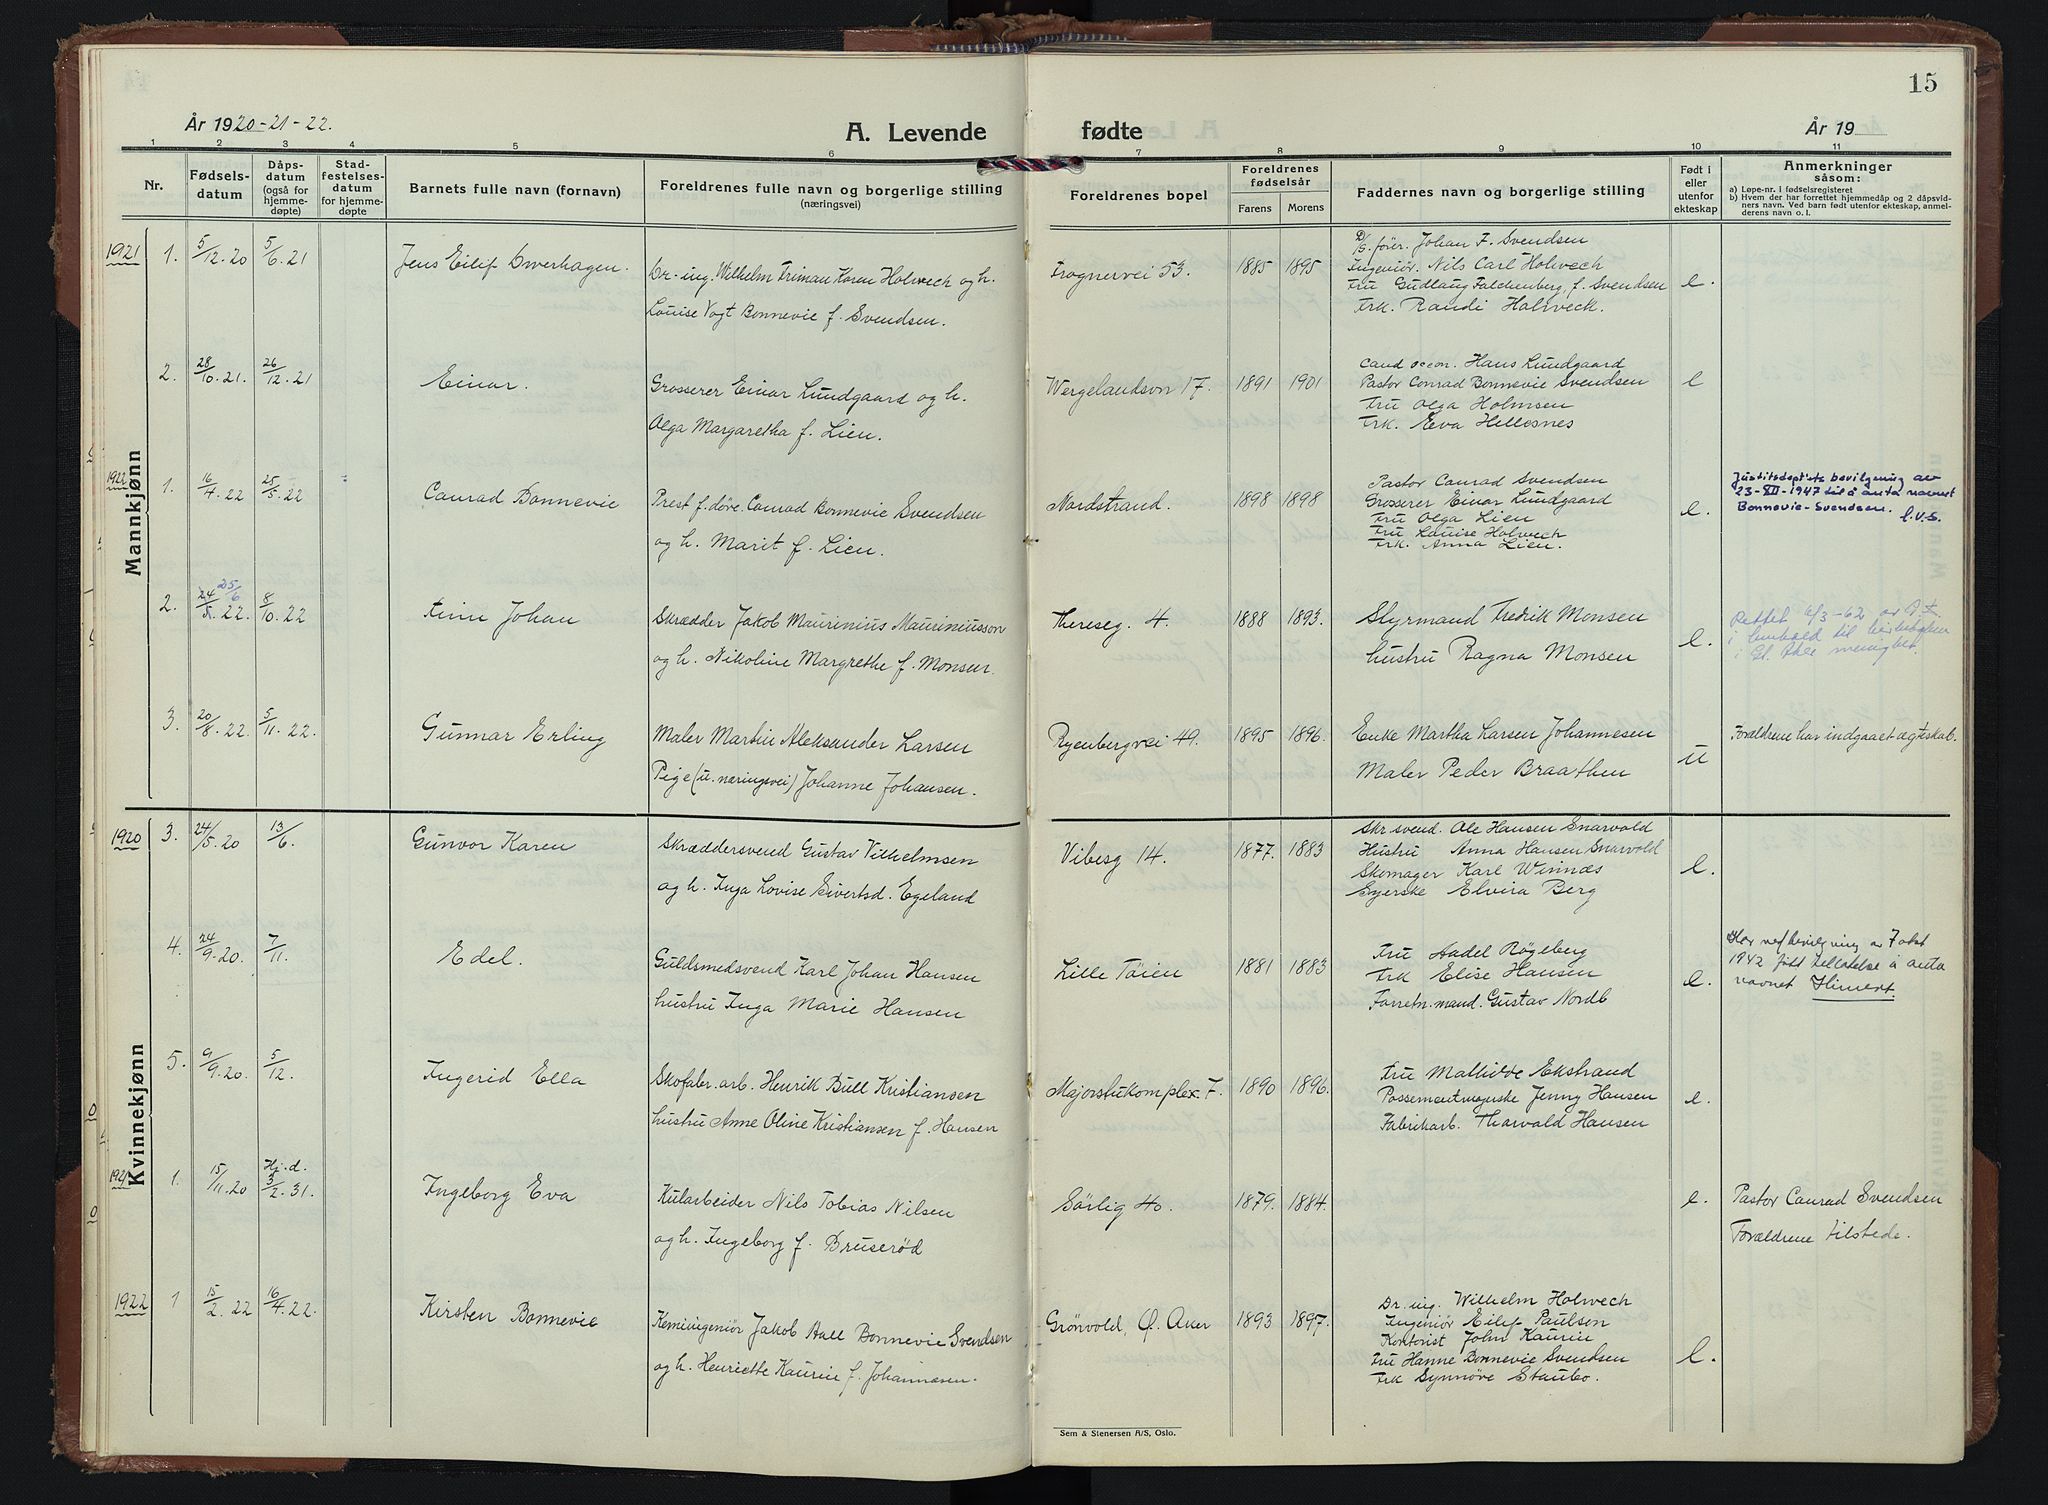 År 1920-21-22.
A. Levende
fødte
År 19
15
1 2 3 4 5 6 7 8 9 10 11
Nr.
Fødsels-
datum
Dåps-
datum
(også for
hjemme-
døpte)
Stad-
festelses-
datum
for hjemme-
døpte
Barnets fulle navn (fornavn)
Foreldrenes fulle navn og borgerlige stilling
(næringsvei)
Foreldrenes bopel
Foreldrenes
fødselsår
Farens Morens
Faddernes navn og borgerlige stilling
Født i
eller
utenfor
ekteskap
Anmerkninger
såsom:
a) Løpe-nr. i fødselsregisteret
b) Hvem der har forrettet hjemmedåp og 2 dåpsvid-
ners navn. Ved barn født utenfor ekteskap, anmel-
derens navn o. l.
Mannkjønn
1921 1. 5/12.20 5/6.21 Jens Eilif Overhagen.
Dr-ing. Wilhelm Friman Koren Holwech og h.
Louise Vogt Bonnevie f. Svendsen.
Frognervei 53. 1885 1895
D/S. fører. Johan F. Svendsen
Ingeniør. Nils Carl Holwech
Fru Gudlaug Falchenberg, f. Svendsen
Frk. Randi Holweck.
e.
2. 28/10.21. 26/12.21 Einar.
Grosserer Einar Lundgaard og h.
Olga Margaretha f. Lien.
Wergelandsvn 17. 1891 1901
Cand oecon. Hans Lundgaard
Pastor Conrad Bonnevie Svendsen
Fru Olga Holmsen
Frk. Eva Hellesnes
e
1922 1. 16/4.22 25/5.22 Conrad Bonnevie
Prest f. døve. Conrad Bonnevie Svendsen
og h. Marit f. Lien.
Nordstrand. 1898 1898
Pastor Conrad Svendsen
Grosserer Einar Lundgaard
Fru Olga Lien
Fru Louise Holwech
Frk. Anna Lien.
e.
Justitsdept's bevilgning av
23-XII-1947 til å anta navnet
Bonnevie-Svendsen.
2. 24/5.22. 25/6 8/10.22 Finn Johan
Skrædder Jakob Maurinius Mauriniusson
og h. Nikoline Margrethe f. Monsen.
Thereseg. 4. 1888 1893.
Styrmand Fredrik Monsen
hustru Ragna Monsen
e.
Rettet 6/3-62 av
i henhold til kirkeboken
i Gl. Aker menighet.
3. 20/8.22. 5/11.22. Gunnar Erling
Maler Martin Aleksander Larsen
Pige (u. næringsvei) Johanne Johansen.
Ryenbergvei 49. 1895 1896.
Enke Martha Larsen Johannesen
Maler Peder Braathen
u
Forældrene har indgaaet ægteskab.
Kvinnekjønn
1920 3. 24/5.20 13/6. Gunvor Karen
Skræddersvend Gustav Vilhelmsen
og h. Inga Lovise Sivertsd. Egeland
Vibesg 14. 1877. 1883
Skr svend. Ole Hansen Snarvold
Hustru Anna Hansen Snarvold
Skomager Karl Winnæs
Syerske Elvira Berg
e.
4. 24/9.20. 7/11. Edel.
Guldsmedsvend Karl Johan Hansen
hustru Inga Marie Hansen
Lille Tøien 1881 1883
Fru Aadel Røgeberg
Frk Elise Hansen
Forretn.mand. Gustav Nordb
e.
Har ved bevilgning av 7 okt
1942 fått tillatelse å anta
navnet Himert.
5. 9/9.20. 5/12. Ingerid Ella
Skofabr.arb. Henrik Bull Kristiansen
hustru Anne Oline Kristiansen f. Hansen
Majorstukomplex. 7. 1890 1896.
Fru Mathilde Ekstrand
Possementmagerske Jenny Hansen
Fabrikarb. Thorvald Hansen
e.
1921 1. 15/11.20 Hj.d. 3/2.31. Ingeborg Eva
Kularbeider Nils Tobias Nilsen
og h. Ingeborg f. Bruserød
Sørlig 40. 1879. 1884.
e.
Pastor Conrad Svendsen
Forældrene tilstede.
1922 1 15/2.22 16/4.22. Kirsten Bonnevie
Kemiingeniør Jakob Aall Bonnevie Svendsen
og h. Henriette Kaurin f. Johannesen.
Grönvold, Ø. Aker 1893 1897.
Dr. ing. Wilhelm Holwech
Ingeniør Eilif Paulson
Kontorist John Kaurin
Fru Hanne Bonnevie Svendsen
Frk Synnöve Staubo.
e.
Sem & Stenersen A/S, Oslo.